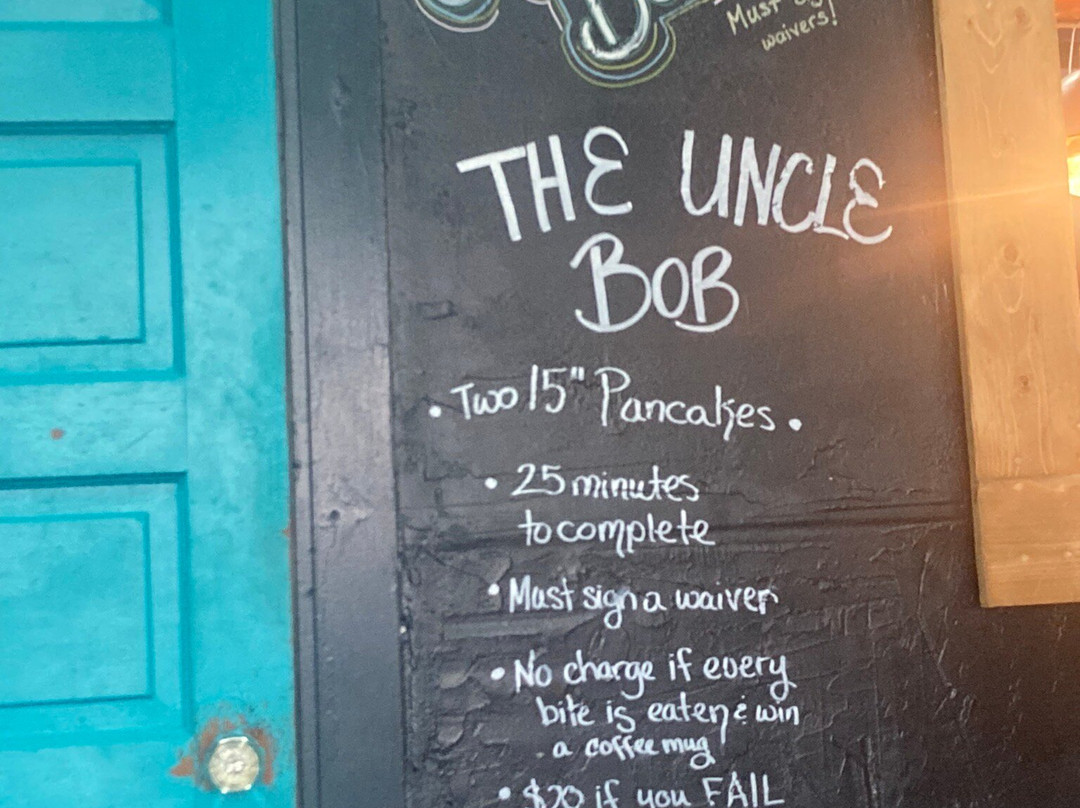 Must
waivers!
THE UNCLE
BOB
• Two 15" Pancakes •
• 25 minutes
to complete
• Must sign a waiver
• No charge if every
bite is eaten & win
a coffee mug
• $20 if you FAIL